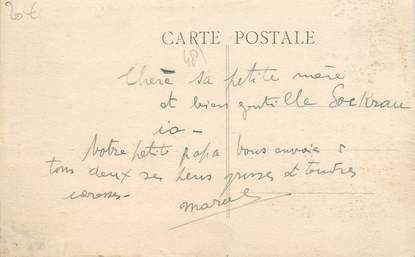 20€
CARTE POSTALE
48
Chère sa petite mère
et bien gentille
ia -
Votre petit papa vous envoie à
tous deux ses plus grosses et tendres
caresses -
Marcel